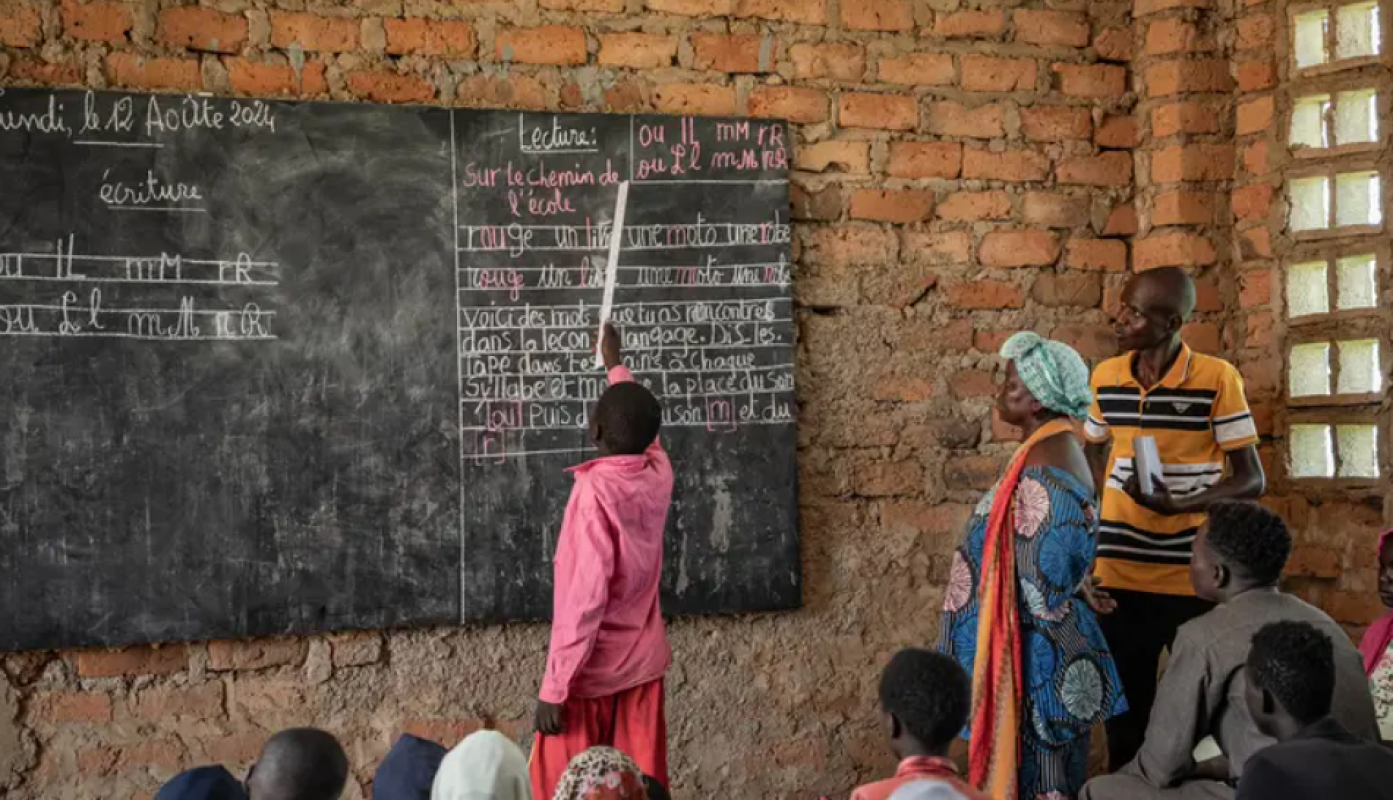 undi, le 12 Aoûte 2024
écriture
ou Ll mM rR
ou Ll mM rR
Lecture:
Sur le chemin de
l'école
ou Ll mM rR
ou Ll mM rR
rouge un une moto une robe
rouge un une moto une
voici des mots que tu as rencontrés
dans la leçon langage. Dis-les.
Tape dans tes mains à chaque
syllabe et la place du son
ou puis du son m et du
r